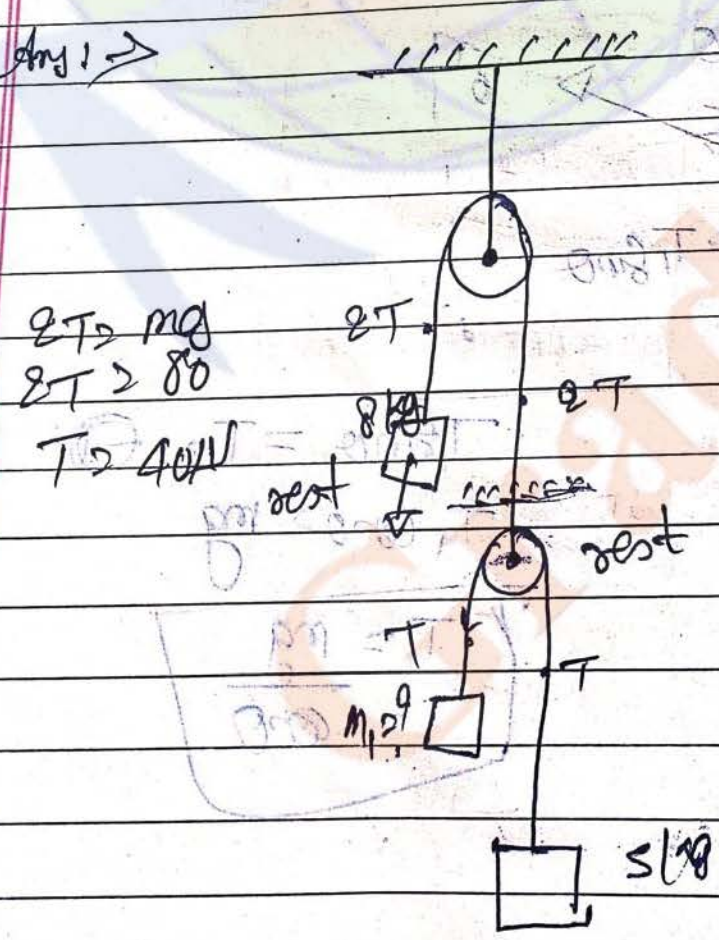 Ans:→
2T = mg
2T = 80
T = 40N
2T
2T
8kg
rest
rest
T
T
m₁ = ?
5kg